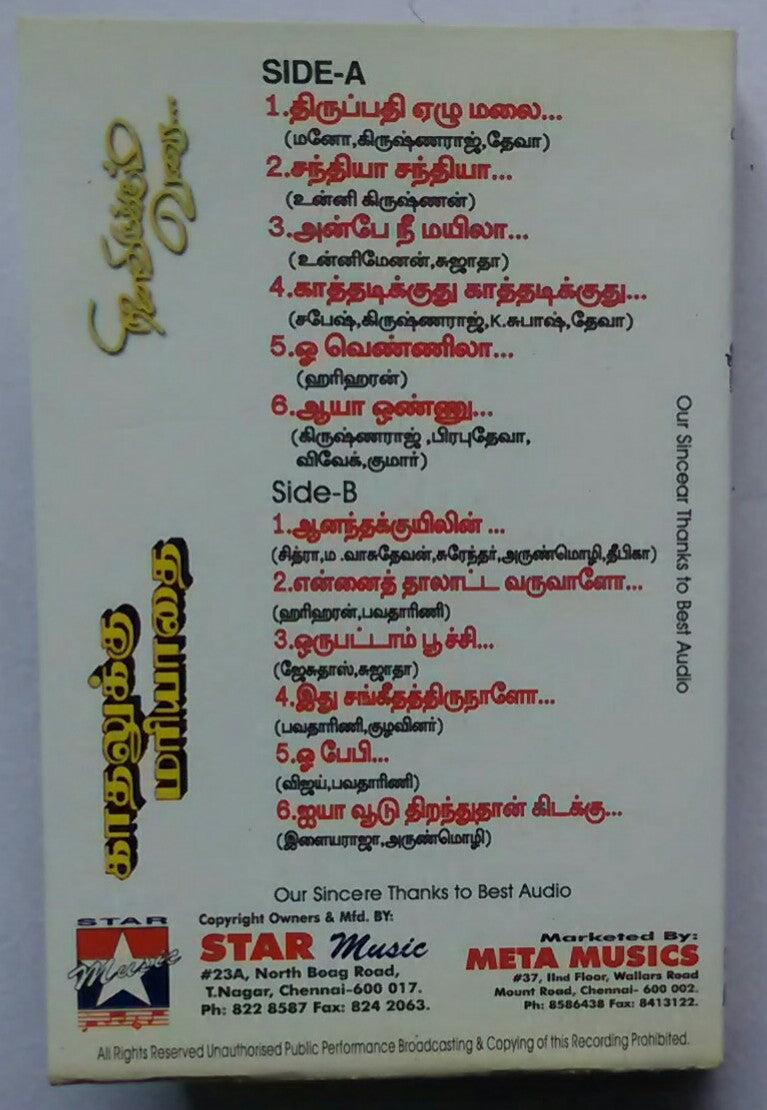 நினைவிருக்கும்
வரை...
SIDE-A
1.திருப்பதி ஏழு மலை...
(மனோ,கிருஷ்ணராஜ்,தேவா)
2.சந்தியா சந்தியா...
(உன்னி கிருஷ்ணன்)
3.அன்பே நீ மயிலா...
(உன்னிமேனன்,சுஜாதா)
4.காத்தடிக்குது காத்தடிக்குது...
(சபேஷ்,கிருஷ்ணராஜ்,K.சுபாஷ்,தேவா)
5.ஓ வெண்ணிலா...
(ஹரிஹரன்)
6.ஆயா ஒண்ணு...
(கிருஷ்ணராஜ் ,பிரபுதேவா,
விவேக்,குமார்)
Side-B
1.ஆனந்தக்குயிலின் ...
(சித்ரா,ம .வாசுதேவன்,சுரேந்தர்,அருண்மொழி,தீபிகா)
2.என்னைத் தாலாட்ட வருவாளோ...
(ஹரிஹரன்,பவதாரிணி)
3.ஒருபட்டாம் பூச்சி...
(ஜேசுதாஸ்,சுஜாதா)
4.இது சங்கீதத்திருநாளோ...
(பவதாரிணி,குழவினர்)
5.ஓ பேபி...
(விஜய்,பவதாரிணி)
6.ஐயா வூடு திறந்துதான் கிடக்கு...
(இளையராஜா,அருண்மொழி)
காதலுக்கு
மரியாதை
Our Sincear Thanks to Best Audio
Our Sincere Thanks to Best Audio
STAR
Music
Copyright Owners & Mfd. BY:
STAR Music
#23A, North Boag Road,
T.Nagar, Chennai-600 017.
Ph: 822 8587 Fax: 824 2063.
Marketed By:
META MUSICS
#37, IInd Floor, Wallars Road
Mount Road, Chennai- 600 002.
Ph: 8586438 Fax: 8413122.
All Rights Reserved Unauthorised Public Performance Broadcasting & Copying of this Recording Prohibited.